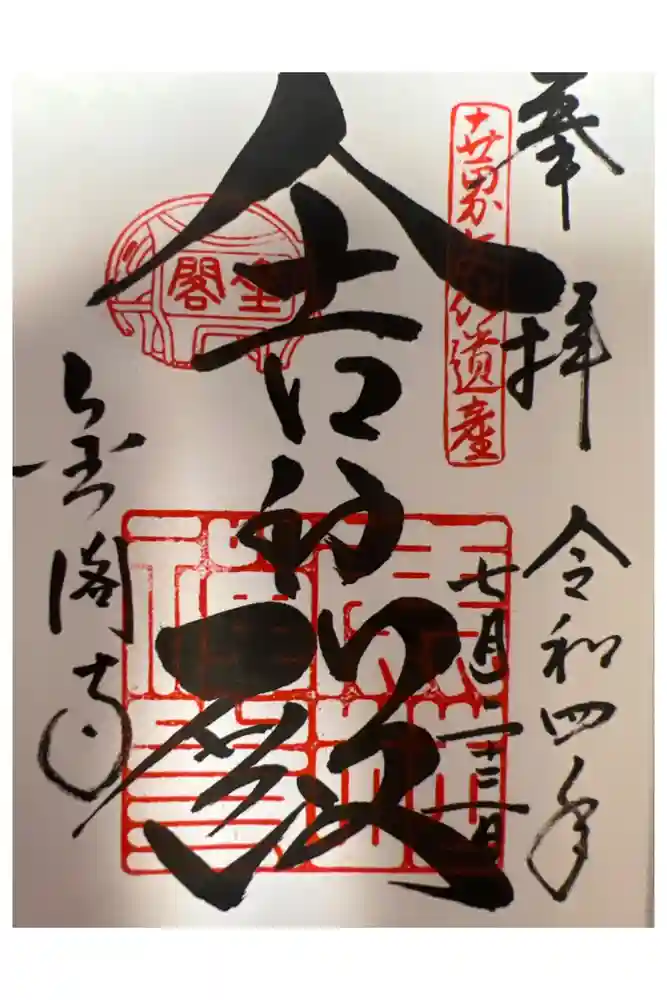 奉拝
令和四年
七月二十三日
世界文化遺産
舎利殿
金閣
金閣寺